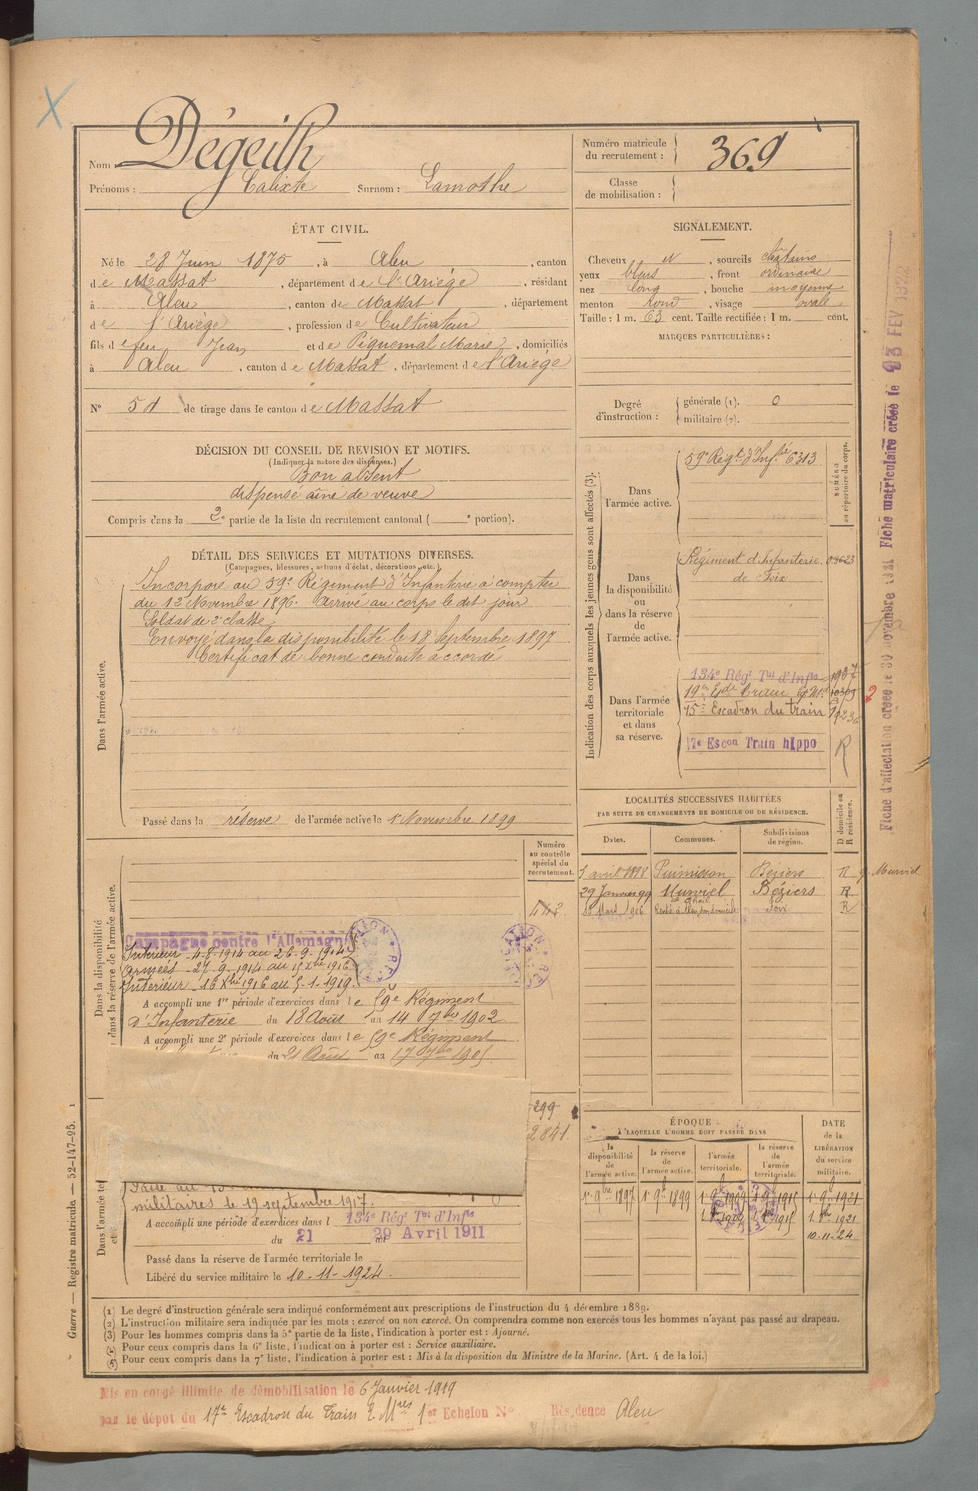 Nom : Dégeilh
Prénoms : Calixte Surnom : Lamothe
Numéro matricule du recrutement : 369
Classe de mobilisation :
ÉTAT CIVIL.
Né le 28 Juin 1875, à Aleu, canton
de Massat, département de l'Ariège, résidant
à Aleu, canton de Massat, département
de l'Ariège, profession de Cultivateur
fils de feu Jean et de Piquemal Marie, domiciliés
à Aleu, canton de Massat, département de l'Ariège
N° 51 de tirage dans le canton de Massat
DÉCISION DU CONSEIL DE REVISION ET MOTIFS.
(Indiquer la nature des dispenses.)
Bon absent
dispensé aîné de veuve
Compris dans la 2e partie de la liste du recrutement cantonal ( e portion).
DÉTAIL DES SERVICES ET MUTATIONS DIVERSES.
(Campagnes, blessures, actions d'éclat, décorations, etc.)
Dans l'armée active.
Incorporé au 59e Régiment d'Infanterie à compter
du 12 Novembre 1896. Arrivé au corps le dit jour
Soldat de 2e classe
Envoyé dans la disponibilité le 18 Septembre 1897
Certificat de bonne conduite accordé
Passé dans la réserve de l'armée active le 1 Novembre 1899
Numéro au contrôle spécial du recrutement.
Dans la disponibilité
dans la réserve de l'armée active.
Campagne contre l'Allemagne
Intérieur 4-8-1914 au 26-9-1914
Armées 27-9-1914 au 15 Xbre 1916
Intérieur 16 Xbre 1916 au 5-1-1919.
A accompli une 1re période d'exercices dans le 59e Régiment
d'Infanterie du 18 Août au 14 7bre 1902
A accompli une 2e période d'exercices dans le 59e Régiment
du 21 Août au 17 7bre 1905
299
2841
militaires le 19 septembre 1917.
A accompli une période d'exercices dans l 134e Régt Tal d'Infie
du 21 au 29 Avril 1911
Passé dans la réserve de l'armée territoriale le
Libéré du service militaire le 10-11-1924.
SIGNALEMENT.
Cheveux N, sourcils châtains
yeux bleus, front ordinaire
nez long, bouche moyenne
menton rond, visage ovale
Taille : 1 m. 63 cent. Taille rectifiée : 1 m. cent.
MARQUES PARTICULIÈRES :
Degré d'instruction : générale (1). 0
militaire (2).
Indication des corps auxquels les jeunes gens sont affectés (3).
NUMÉRO au répertoire du corps.
Dans l'armée active. 59e Regt. d'Infie 6313
Dans la disponibilité ou dans la réserve de l'armée active. Régiment d'Infanterie de Foix
Dans l'armée territoriale et dans sa réserve.
134e Régt Tal d'Infie
15e Escadron du train
17e Escon Train hippo R
LOCALITÉS SUCCESSIVES HABITÉES
PAR SUITE DE CHANGEMENTS DE DOMICILE OU DE RÉSIDENCE.
Dates. Communes. Subdivisions de région. D domicile ou R résidence.
1 avril 1898 Puimisson Béziers R
29 Janvier 99 Murviel Béziers R
ÉPOQUE
A LAQUELLE L'HOMME DOIT PASSER DANS
la disponibilité de l'armée active. la réserve de l'armée active. l'armée territoriale. la réserve de l'armée territoriale.
DATE de la LIBÉRATION du service militaire.
1er 9bre 1897 1er 9bre 1899 1er 9bre 1909 1er 9bre 1915 1er 9bre 1921
10-11-24
Fiche d'affectation créée le 30 novembre 1921 Fiche matriculaire créée le 23 FEV 1922
Guerre — Registre matricule. — 52-147-95.
(1) Le degré d'instruction générale sera indiqué conformément aux prescriptions de l'instruction du 4 décembre 1889.
(2) L'instruction militaire sera indiquée par les mots : exercé ou non exercé. On comprendra comme non exercés tous les hommes n'ayant pas passé au drapeau.
(3) Pour les hommes compris dans la 5e partie de la liste, l'indication à porter est : Ajourné.
(4) Pour ceux compris dans la 6e liste, l'indication à porter est : Service auxiliaire.
(5) Pour ceux compris dans la 7e liste, l'indication à porter est : Mis à la disposition du Ministre de la Marine. (Art. 4 de la loi.)
Mis en congé illimité de démobilisation le 6 Janvier 1919
par le dépôt du 17e Escadron du Train 1er Echelon N° Résidence Aleu